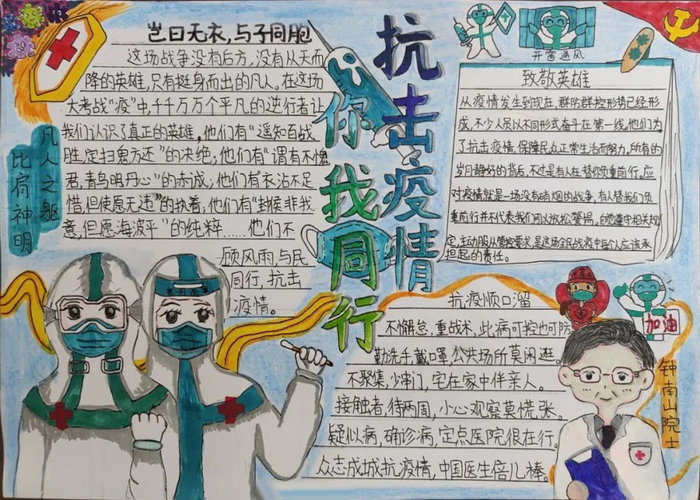 岂曰无衣,与子同胞
这场战争没有后方,没有从天而
降的英雄,只有挺身而出的凡人。在这场
大考战“疫”中,千千万万个平凡的逆行者让
我们认识了真正的英雄,他们有“遥知百战
胜,定扫鬼方还”的决绝;他们有“谓有不愧
君,青鸟明丹心”的赤诚,他们有衣沾不足
惜,但使愿无违”的执着,他们有“封侯非我
意,但愿海波平”的纯粹……他们不
顾风雨,与民
同行,抗击
疫情。
凡人之躯
比肩神明
抗击疫情
你我同行
开窗通风
致敬英雄
从疫情发生到现在,群防群控形势已经形
成,不少人员以不同形式奋斗在第一线,他们为
了抗击疫情,保障民众正常生活而努力,所有的
岁月静好的背后,不过是有人在替你负重前行,应
对疫情就是一场没有硝烟的战争,有人替我们负
重前行并不代表我们可以放松警惕,自觉遵守相关规
定,主动服从管控要求,是这场全民战疫中每个人应该承
担起的责任。
抗疫顺口溜
不懈怠,重战术,此病可控也可防
勤洗手,戴口罩,公共场所莫闲逛。
不聚集,少串门,宅在家中伴亲人。
接触者,待两周,小心观察莫慌张。
疑似病,确诊病,定点医院很在行。
众志成城抗疫情,中国医生倍儿棒。
加油
钟南山院士